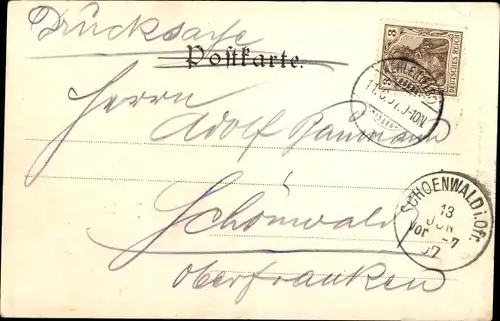 Drucksache
Postkarte.
3
DEUTSCHES REICH
11.6.07. 9-10N
Herrn
Adolf Baumann
Schönwald
Oberfranken
SCHOENWALD i. Ofr.
13
JUN
Vor 7
07